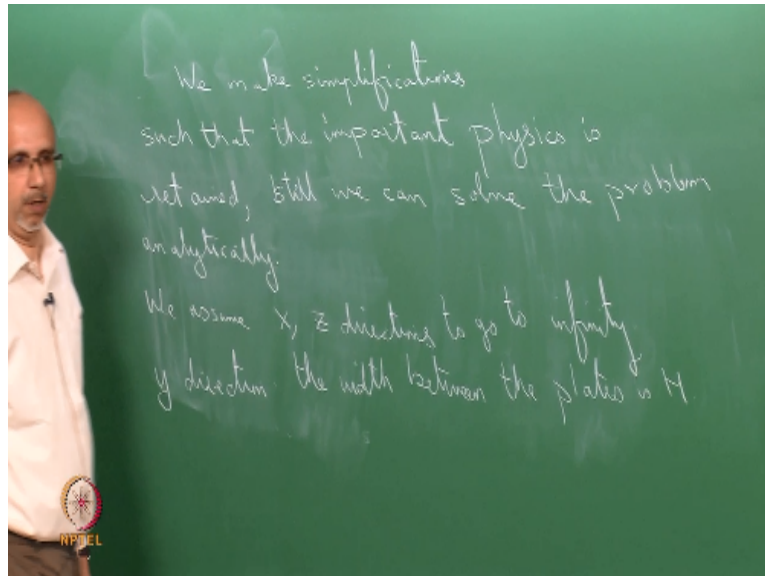 We make simplifications
such that the important physics is
retained, still we can solve the problem
analytically.
We assume x, z directions to go to infinity
y direction the width between the plates is H
NPTEL